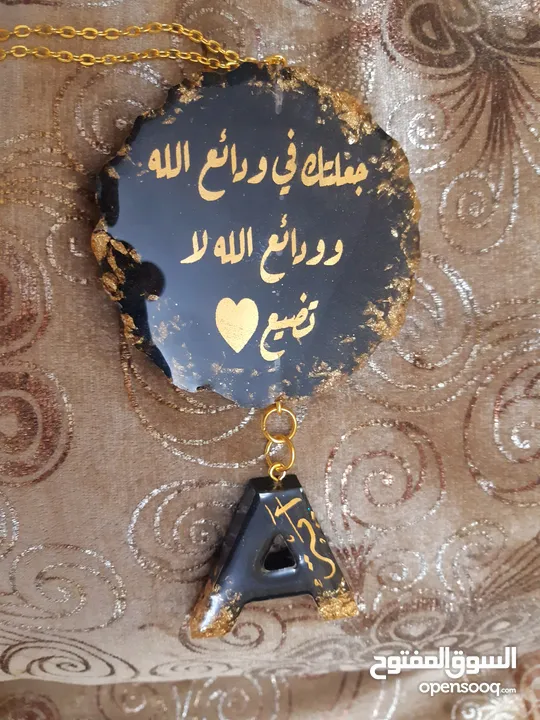 جعلتك في ودائع الله
وودائع الله لا
تضيع
السوق المفتوح
opensooq.com